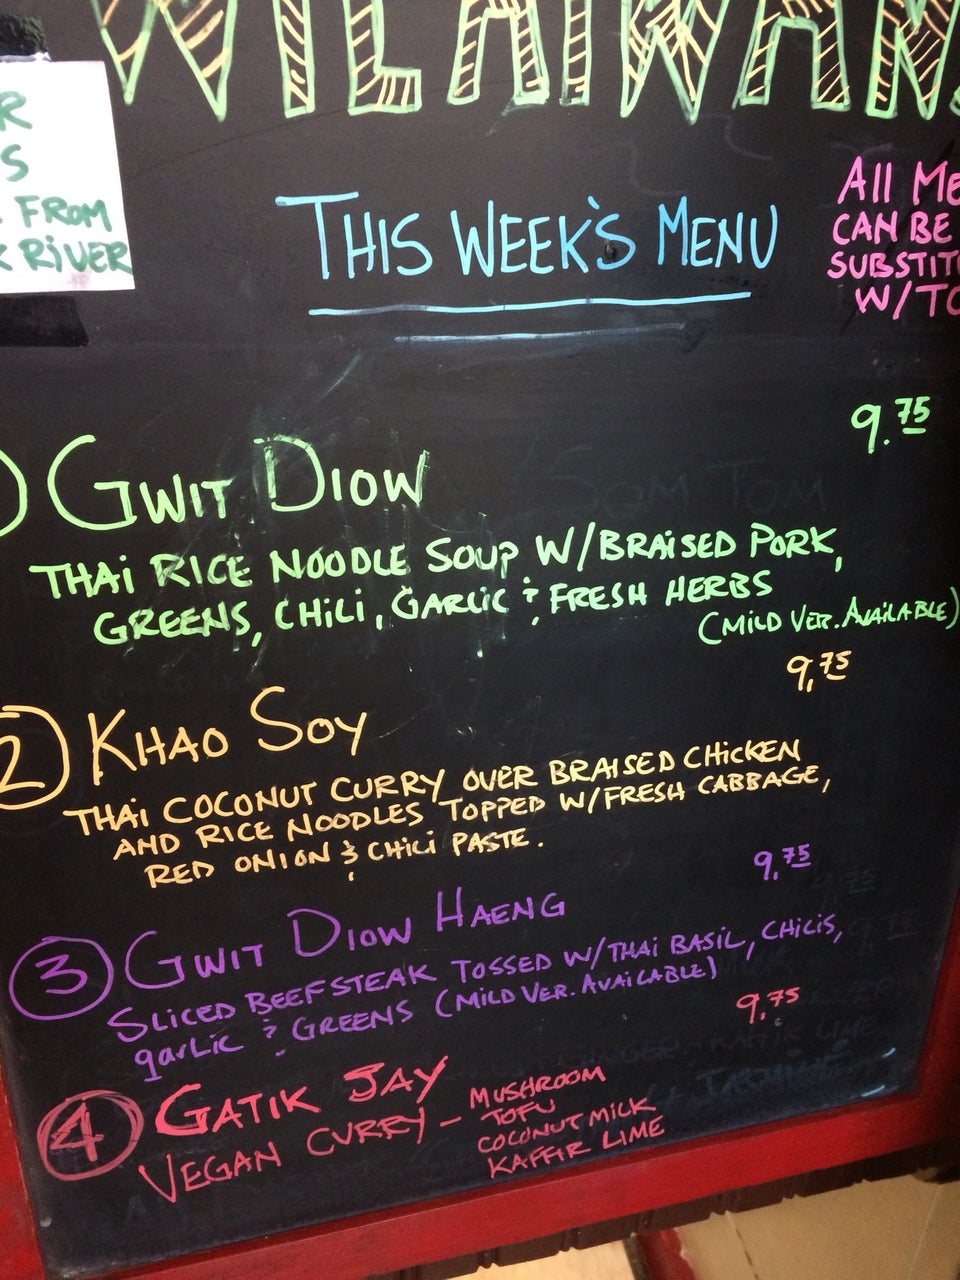 WILAIWAN
R
S
FROM
RIVER
THIS WEEK'S MENU
All Me
CAN BE
SUBSTIT
W/TO
9.75
GWIT DIOW
THAI RICE NOODLE SOUP W/BRAISED PORK,
GREENS, CHILI, GARLIC & FRESH HERBS
(MILD VER. AVAILABLE)
9.75
2 KHAO SOY
THAI COCONUT CURRY OVER BRAISED CHICKEN
AND RICE NOODLES TOPPED W/FRESH CABBAGE,
RED ONION & CHILI PASTE.
9.75
3 GWIT DIOW HAENG
SLICED BEEFSTEAK TOSSED W/THAI BASIL, CHILIS,
garlic & GREENS (MILD VER. AVAILABLE)
9.75
4 GATIK JAY
VEGAN CURRY - MUSHROOM
TOFU
COCONUT MILK
KAFFIR LIME